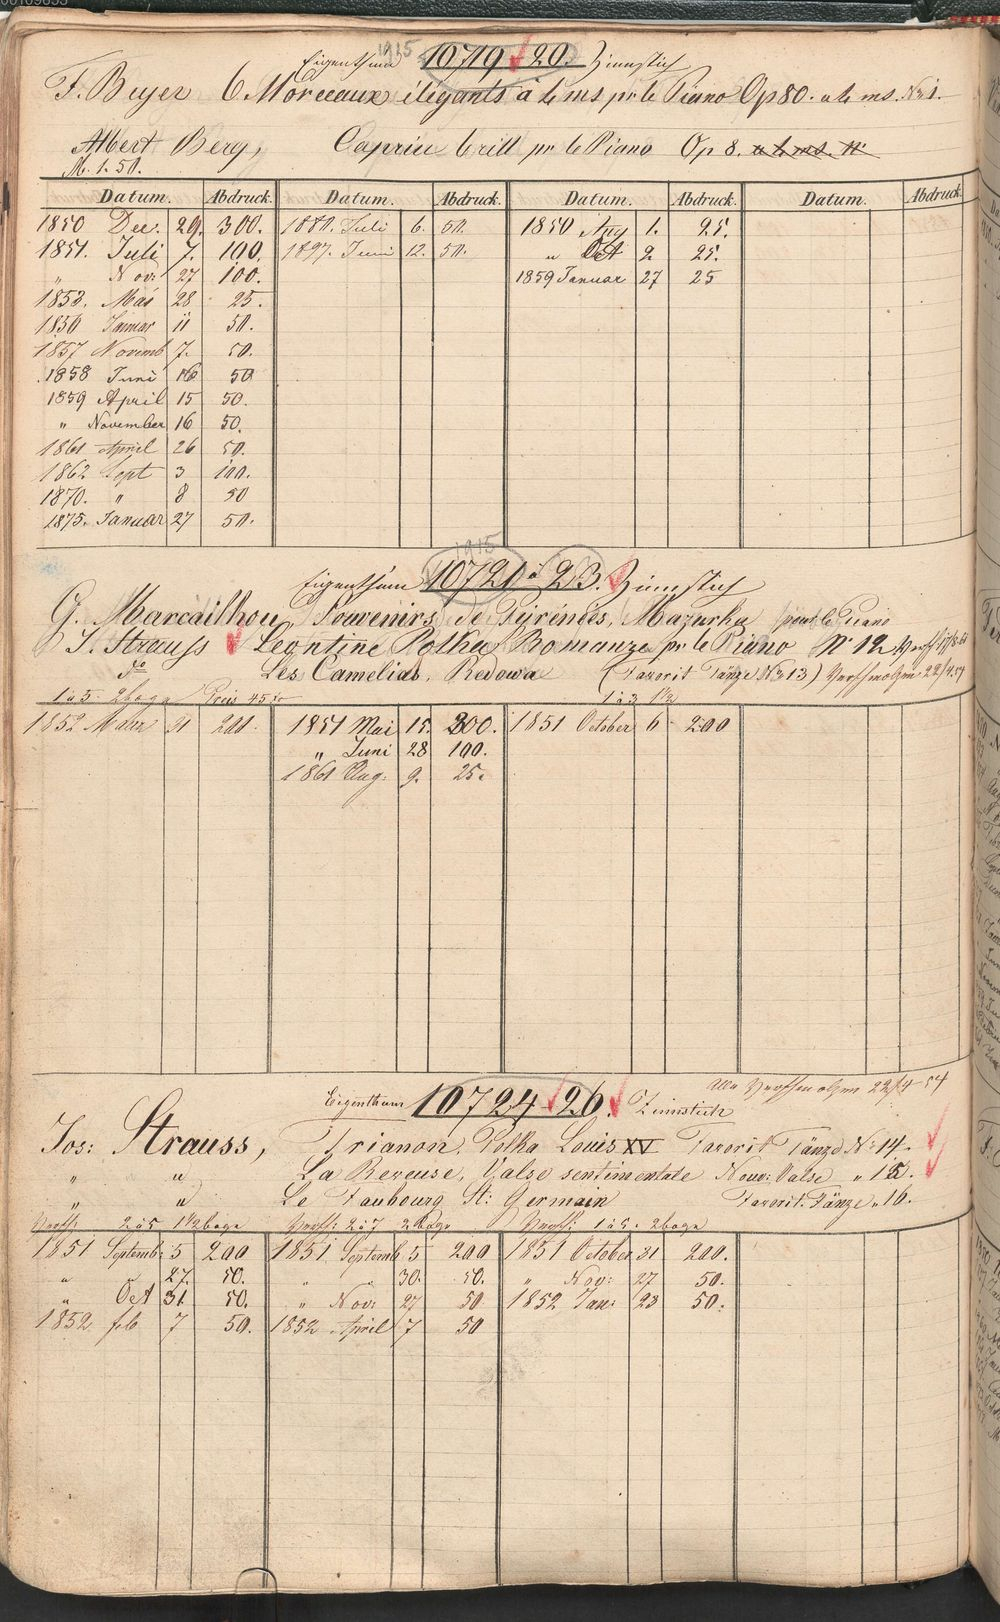 Eigenthum 1915 10719 20. Zinnstich
F. Beyer 6 Morceaux élégants à 4 ms pr le Piano Op 80. a 4 ms. No 1.
Albert Berg, Caprice brill pr le Piano Op 8. a 4 ms.
M. 1.50.
Datum. Abdruck. Datum. Abdruck. Datum. Abdruck. Datum. Abdruck.
1850 Dec: 20. 300. 1880. Juli 6. 50. 1850 Aug 1. 25.
1851. Juli 7. 100. 1897. Juni 12. 50. " Oct 2. 25.
" Nov: 27 100. 1859 Januar 27 25
1853. Mai 28 25.
1856 Januar 11 50.
1857 Novemb 7. 50.
1858 Juni 16 50
1859 April 15 50.
" November 16 50.
1861 April 26 50.
1862 Sept 3 100.
1870. " 8 50
1875. Januar 27 50.
1915
Eigenthum 10721 à 23. Zinnstich
G. Marcailhou, Souvenirs de Pyrénées, Mazurka pour le Piano
J. Strauss Leontine Polka Romanze pr le Piano No 12
do Les Camelias. Redowa (Favorit Tänze No 13)
1 à 5. 2 boga Preis 45 1 à 3 1 1/2
1852 März 21 200. 1851 Mai 15. 200. 1851 October 6 200
" Juni 28 100.
1861 Aug: 9. 25.
22/4 54
Eigenthum 10724 26. Zinnstich
Jos: Strauss, Trianon, Polka Louis XV Favorit Tänze No 14
" " La Rereuse, Valse sentimentale Nouv: Valse " 15.
" " Le Faubourg St: Germain Favorit: Tänze " 16.
2 à 5 1 1/2 boga 2 à 7 2 boga 1 à 5. 2 boga
1851 Septemb: 5 200 1851 Septemb 5 200 1851 October 31 200.
" " 27. 50. " " 30. 50. " Nov: 27 50.
" Oct 31. 50. " Nov: 27 50 1852 Jan: 23 50.
1852 feb 7 50. 1852 April 7 50